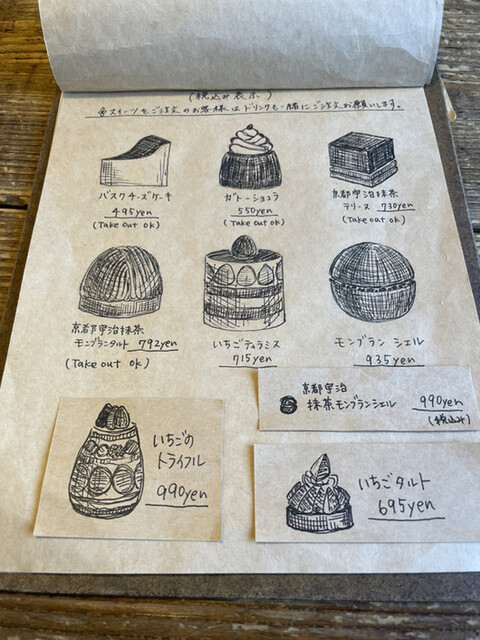 (税込み表示)
※スイーツをご注文のお客様はドリンクも一緒にご注文お願いします。
バスクチーズケーキ
495yen
(Take out ok)
ガトーショコラ
550yen
(Take out ok)
京都宇治抹茶
テリーヌ 730yen
(Take out ok)
京都宇治抹茶
モンブランタルト 792yen
(Take out ok)
いちごティラミス
715yen
モンブラン シェル
935yen
京都宇治
抹茶モンブランシェル 990yen
(税込み)
いちごの
トライフル
990yen
いちごタルト
695yen